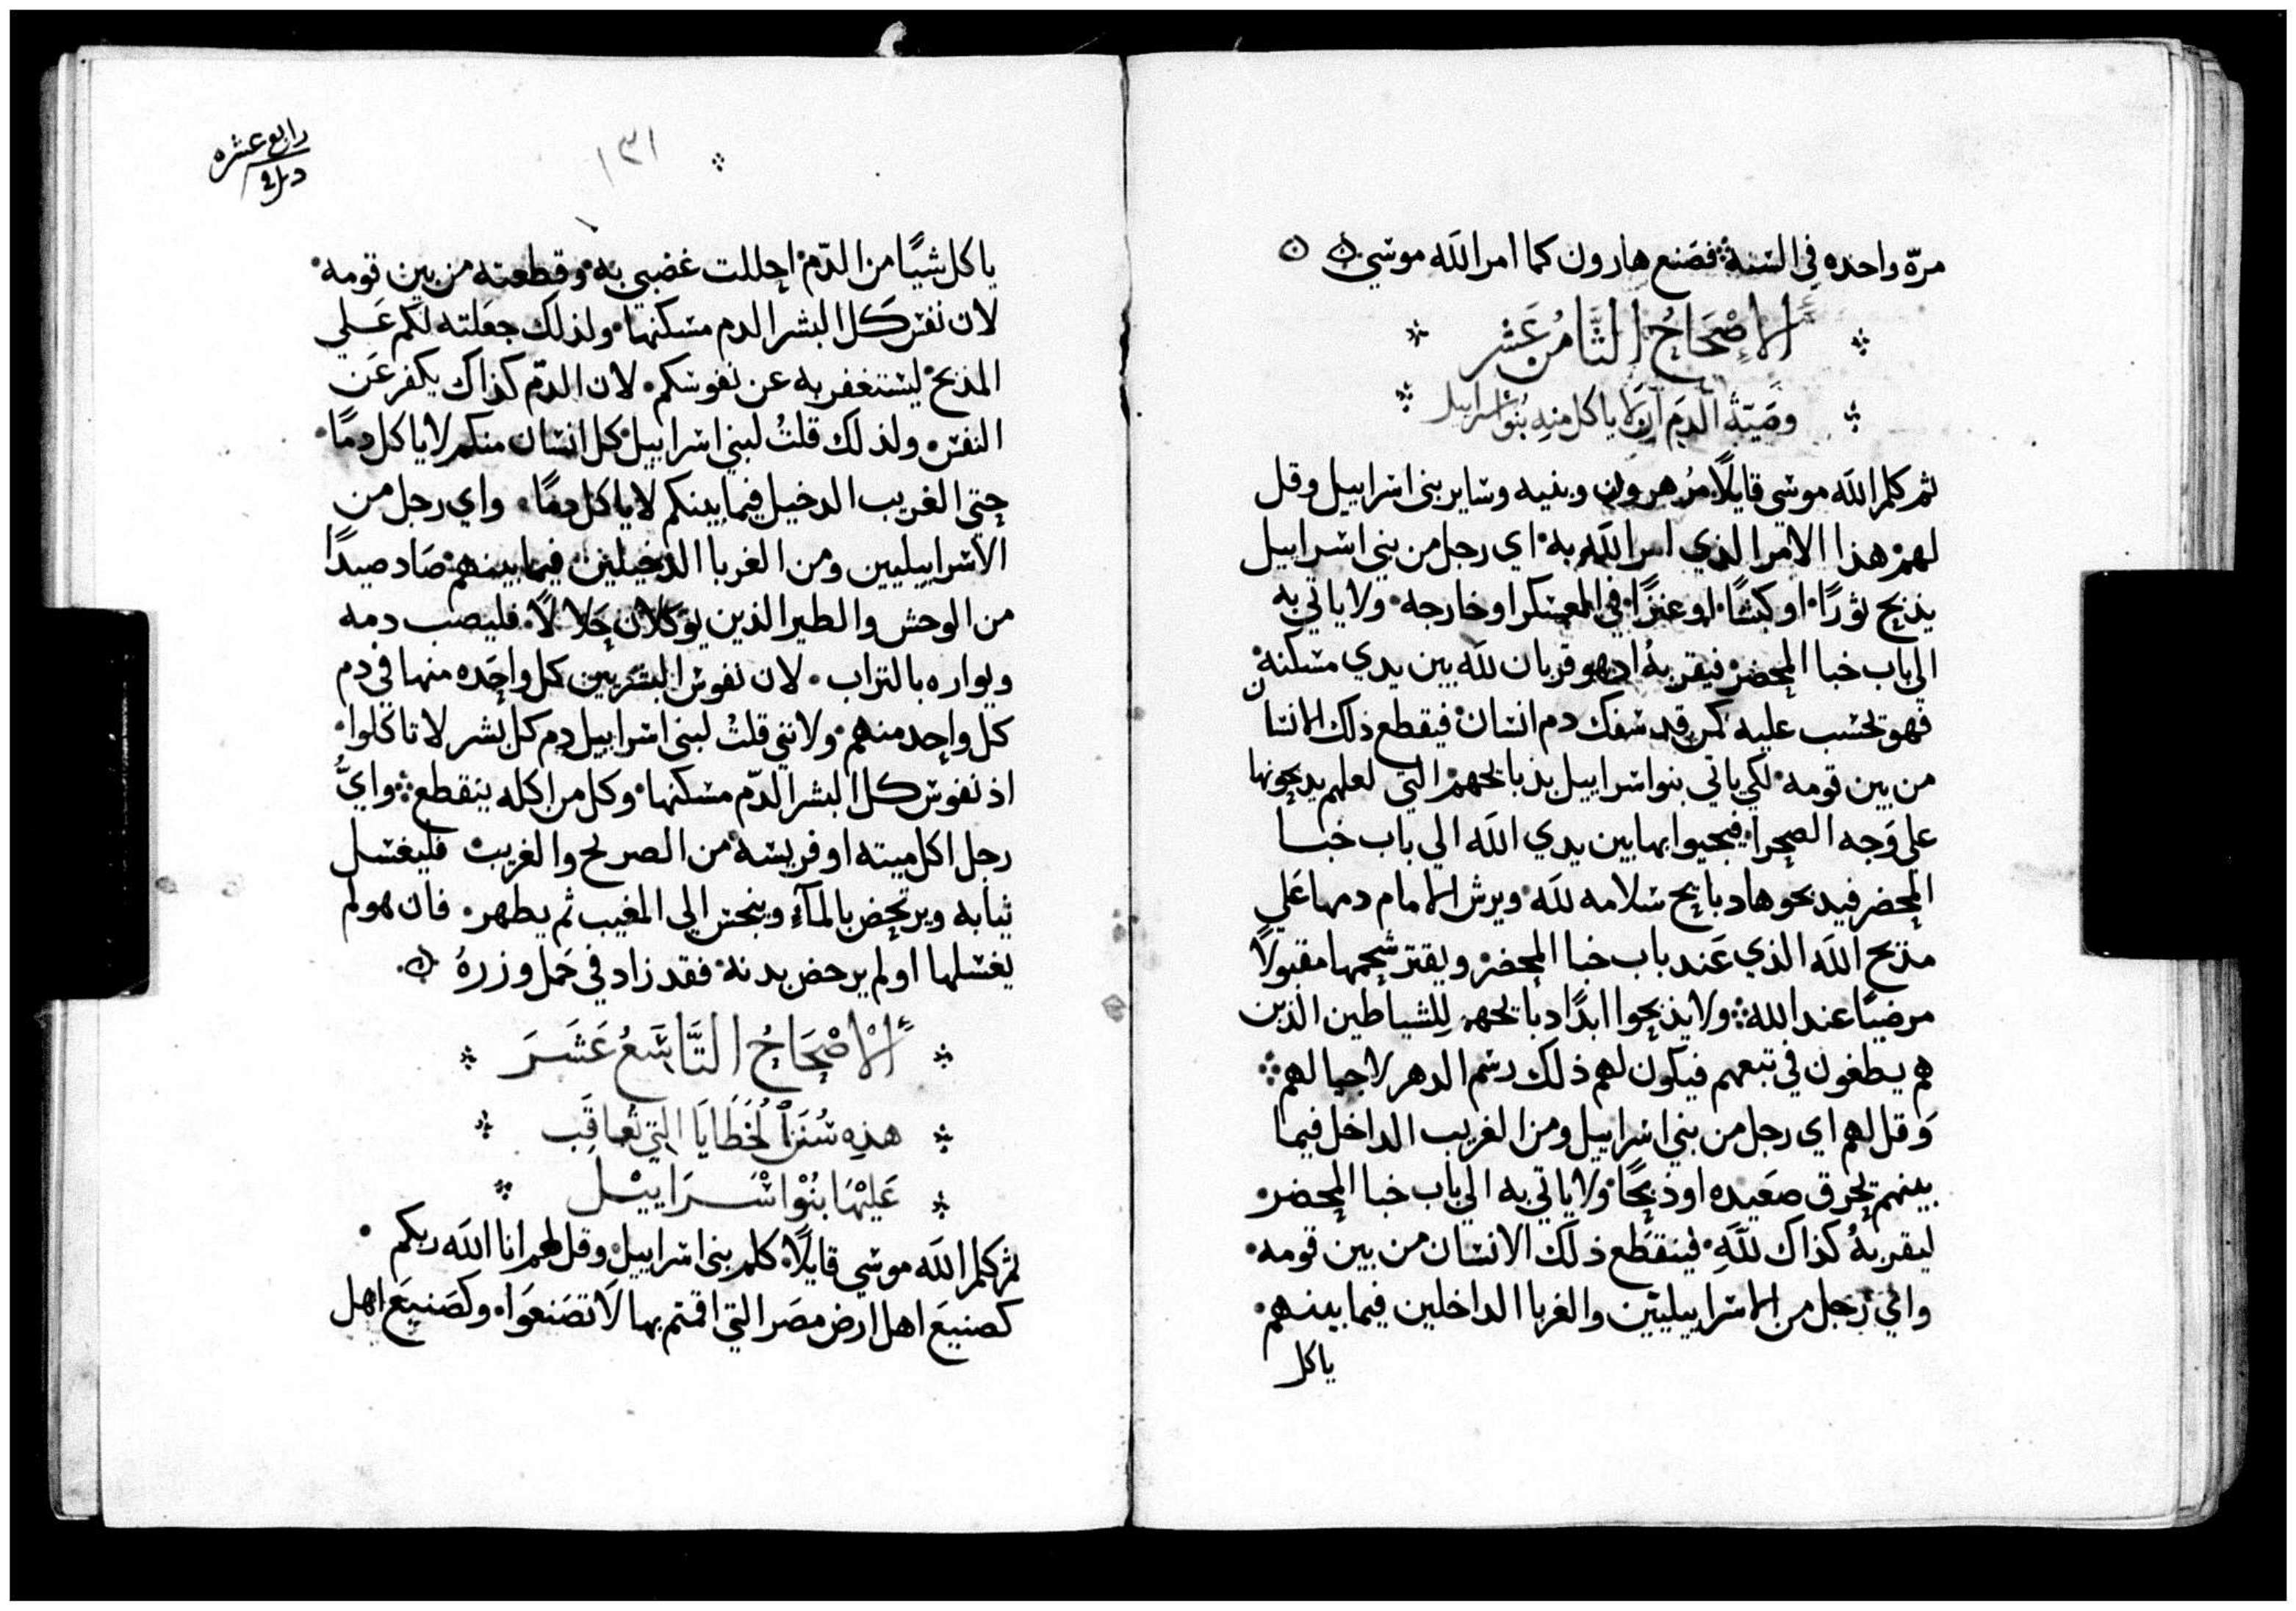 مرّه واحده في السنة فصَنع هارون كما امر اللَه موسي
اَلاِصْحَاحُ الثَّامُن عَشر
وصَيّة الَدم ان لا ياكل منه بُنوا اسراييل
ثم كلم اللَه موسي قايلًا مُر هرون وبنيه وساير بني اسراييل وقل
لهم هذا الامر الذي امر اللَه به اي رجل من بني اسراييل
يذبح ثورًا او كبشًا او عنزًا في المعسكر او خارجه ولا ياتي به
الي باب خبا المحضر فيقربهُ اذ هو قربان للَه بين يدي مسكنه
فهو تحسب عليه كمن قد سفك دم انسان فيقطع ذلك الانسان
من بين قومه لكي ياتي بنوا اسراييل بذبايحهم التي لعلهم يذبحونها
علي وَجه الصحرا فيجيوا بها بين يدي اللَه الي باب خبا
المحضر فيذبحوها دبايح سلامه للَه ويرش الامام دمها عَلي
مذبح اللَه الذي عَند باب خبا المحضر ويقتر شحمها مقبولًا
مرضيًا عند الله ولا يذبحوا ابدًا دبايحهم للشياطين الذين
هم يطغون في تبعهم فيكون لهم ذلك رسم الدهر لاجيالهم
وَقل لهم اي رجل من بني اسراييل ومن الغريب الداخل فيما
بينهم يحرق صَعيده او ذبحًا ولا ياتي به الي باب خبا المحضر
ليقربهُ كذاك للَّهِ فينقطع ذلَك الانسان من بين قومه
واي رَجل من الاسراييليّين والغربا الداخلين فيما بينهم
ياكل
رابع عشره
١٣١
ياكل شيًا من الدّم احللت غضبي به وقطعته من بين قومه
لان نفس كَل البشر الدم مسكنها ولذلك جعَلته لَكم عَلي
المذبح ليستغفر به عن نفوسكم لان الدّم كذاك يكفر عَن
النفس ولذلك قلتُ لبني اسراييل كل انسان منكم لا ياكل دمًا
حتي الغريب الدخيل فيما بينكم لا ياكل دمًا واي رجل من
الاسراييليين ومن الغربا الدخيلين فيما بينهم صَاد صيدًا
من الوحش والطير الذين يوكلان حَلالًا فليصب دمه
ويواره بالتراب لان نفوس البشريين كل واحَده منها في دم
كل واحد منهم ولانني قلتُ لبني اسراييل دم كل بشر لا تاكلوا
اذ نفوس كل البشر الدّم مسكنها وكل من اكله ينقطع وايُّ
رجل اكل ميته او فريسه من الصريح والغريب فليغسل
ثيابه ويرتحض بالمآء وينجس الي المغيب ثم يطهر فان هو لم
يغسلها او لم يرحض بدنه فقد زاد في حَمل وزرهُ
اَلاْصْحَاحُ التَّاسَعُ عَشَرَ
هذِه سُنَن اُلخَطَايَا التي تُعاقَب
عَليْهَا بنُوْا اسْرَاييْل
ثم كلم اللَه موسي قايلًا كلم بني اسراييل وقل لهم انا اللَه ربكم
كصنيعَ اهل ارض مصَر التي اقمتم بها لَا تصَنعَوا وكصَنيعَ اهل